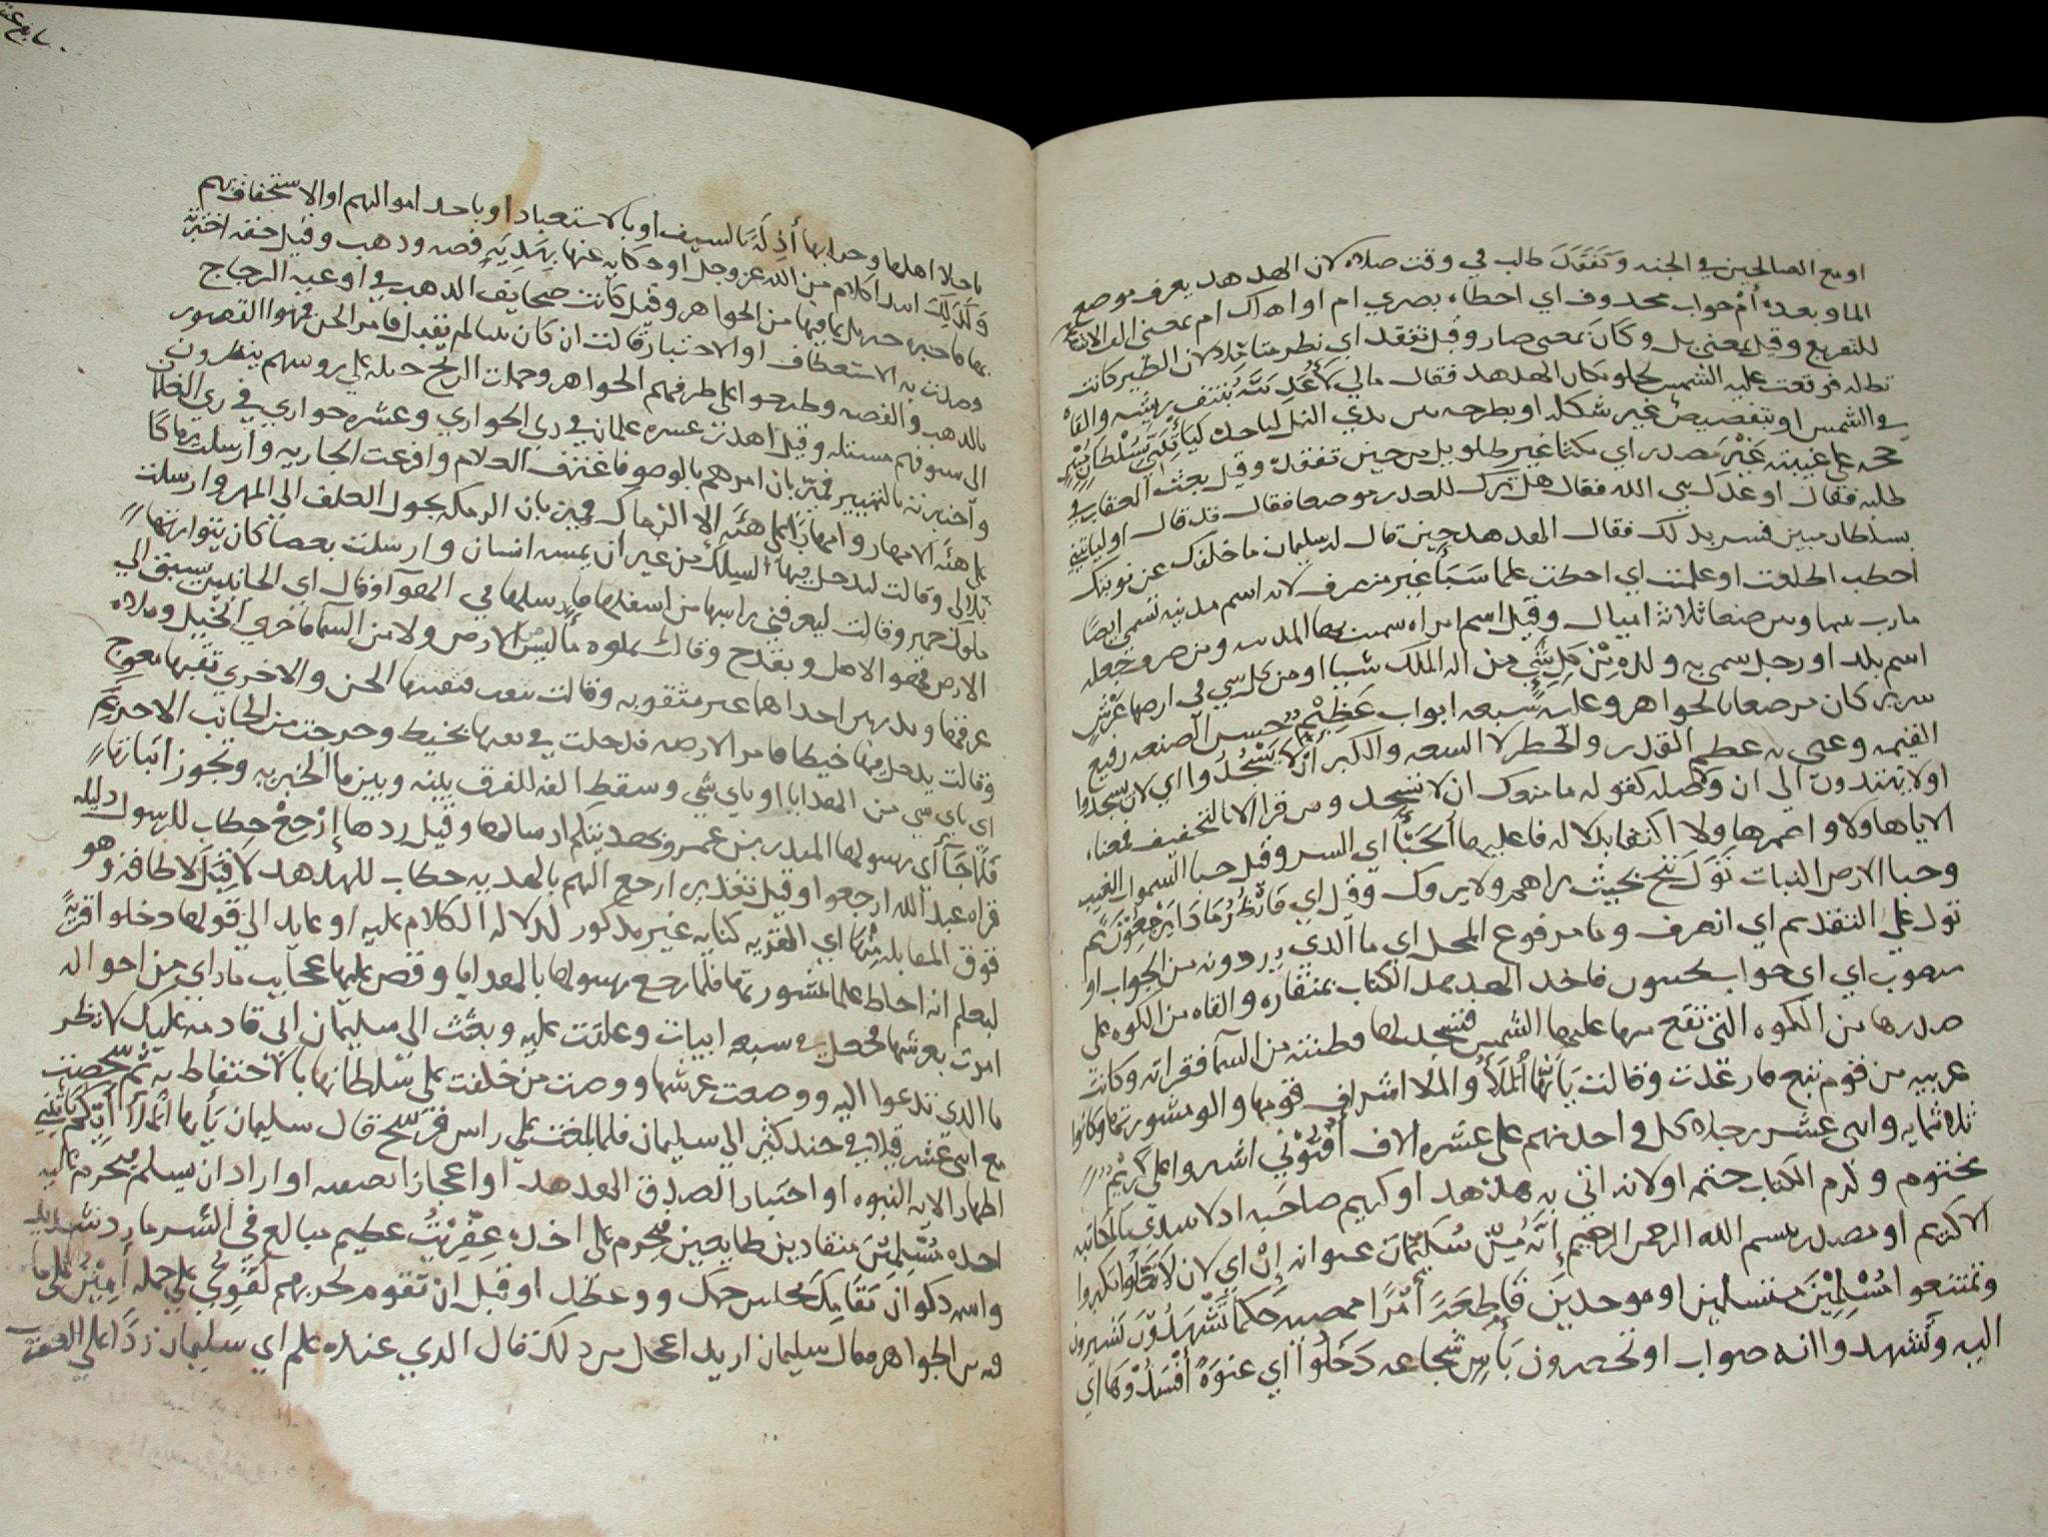 او مع الصالحين في الجنه وَتَفَقَّدَ طلب في وقت صلاه لان الهدهد يعرف موضع
الما وبعده أَمْ جواب محذوف اي احطاء بصري ام او اهداك ام بمعنى الف الاستفهام
للتقريع وقيل بمعنى بل وكان بمعنى صار وقيل تفقد اي نظر متاملا لان الطير كانت
تظله فوقعت عليه الشمس لخلو مكان الهدهد فقال مالي لَأُعَذِّبَنَّهُ بنتف ريشه والقاه
في الشمس او بتغيير شكله او بطرحه بين يدي النمل لياكله لَيَأْتِيَنِّي بِسُلْطَانٍ مُبِينٍ
حجه على غيبته غَيْرَ مصدر اي مكثا غير طويل من حين تفقده وقيل بعث العقاب في
طلبه فقال او عدك نبي الله فقال هل ترك للعذر موضعا فقال قد قال او لياتيني
بسلطان مبين فسر بذلك فقال الهدهد حين قال له سليمان ما خلفك عن نوبتك
احطت اطلعت او علمت اي احطت علما سَبَأ غير منصرف لانه اسم مدينه تسمى ايضا
مارب بينها وبين صنعا ثلاثة اميال وقيل اسم امراه سميت بها المدينه ومن صرف جعله
اسم بلد او رجل سمي به ولده مِنْ كُلِّ شَيْءٍ من اله الملك شيا او من كل شي في ارضها عَرْشٌ
سرير كان مرصعا بالجواهر وعليه سبعه ابواب عَظِيمٌ حسن الصنعه رفيع
القيمه وعني به عظم القدر والخطر لا السعه والكبر أَلَّا يَسْجُدُوا اي لان يسجدوا
او لا يهتدون الى ان ولا صله كقوله ما منعك ان لا تسجد ومن قرا الا بالتخفيف فمعناه
الا ياها ولا واعمرها ولا اكتفا بدلاله فاعليها الْخَبْءَ اي السر وقيل خبا السموات الغيب
وخبا الارض النبات تَوَلَّ تنح بحيث تراهم ولا يروك وقيل اي فانظر مَاذَا يَرْجِعُونَ ثم
تول على التقديم اي انصرف وما مرفوع المحل اي ما الذي يردونه من الجواب او
منصوب اي اي جواب يحسبون فاخذ الهدهد الكتاب بمنقاره والقاه من الكوه على
صدرها من الكوه التي تقع منها عليها الشمس فتسجد لها وظنته من السما فقراته وكانت
عربيه من قوم تبع فارتعدت وقالت يَاأَيُّهَا الْمَلَأُ والملا اشراف قومها والو مشورتها وكانوا
ثلاثمايه واثنى عشر رجلا كل واحد منهم على عشره الاف أَفْتُونِي اشيروا علي كَرِيمٌ
مختوم وكرم الكتاب ختمه او لانه اتي به هدهد او كريم صاحبه اذ لا يبتدي بالمكاتبه
الا كريم او مصدر ببسم الله الرحمن الرحيم إِنَّهُ مِنْ سُلَيْمَانَ عنوانه إِنْ اي لان لا تَعْلُوا تتكبروا
وتمتنعوا مُسْلِمِينَ مستسلمين او موحدين قَاطِعَةً أَمْرًا ممضيه حكما تَشْهَدُونِ تشيرون
اليه وتشهدوا انه صواب او تحضرون بَأْسٍ شجاعه دَخَلُوا اي عنوةً أَفْسَدُوهَا اي
باجلا اهلها وخرابها أَذِلَّةً بالسيف او بالاستعباد او باخذ اموالهم او الاستخفاف بهم
وَكَذَلِكَ ابتدا كلام من الله عز وجل او حكايه عنها بِهَدِيَّةٍ فضه وذهب وقيل حقه
فيها من الجواهر وقيل كانت صحايف الذهب في اوعيه الزجاج
وصلت به الاستعطاف او الاختبار قالت ان كان نبيا لم يقبل فامر الجن فموهوا القصور
بالذهب والفضه وطرحوا على طرقهم الجواهر وحملت الريح على روسهم ينظرون
الى سوقهم وقيل اهدت عشره غلمان في زي الجواري وعشره جواري في زي الغلمان
واختبرته بالتمييز فميز بان امرهم بالوضو فاغترف الغلام وافرغت الجاريه وارسلت رماكا
على هيئه الامهار وامهارا على هيئه الرماك فميز بان الرمكه يجول العلف الى المهر وارسلت
وقالت لتدخل فيها السلك من غير ان يمسه انسان وارسلت بعصا كان يتوارثها
ملوك حمير وقالت ليعرفني راسها من اسفلها فارسلها في الهوا وقال اي الجانبين سبق الى
الارض فهو الاصل وبقدح وقالت يملوه ما ليس من الارض ولا من السما فاجري الخيل وملاه
عرقها وبدرتين احداهما غير مثقوبه وقالت تثقب فثقبتها الجن والاخري ثقبها معوج
وقالت يدخل فيها خيطا فامر الارضه فدخلت في ثقبها بخيط وخرجت من الجانب الاخر بِمَ
اي باي شي من الهدايا او باي شي وسقط الفه للفرق بينه وبين ما الخبريه وتجوز اثباتها
فَلَمَّا جَاءَ اي رسولها المنذر بن عمرو بهديتكم ارسالها وقيل ردها إِرْجِعْ خطاب للرسول دليله
قراه عبد الله ارجعوا وقيل تقديره ارجع اليهم بالهديه خطاب للهدهد لَا قِبَلَ لا طاقه وهو
فوق المقابله مِنْهَا اي القريه كنايه غير مذكور لدلاله الكلام عليه او عايد الى قولها دخلوا قرية
ليعلم انه احاط علما بمشورتها فلما رجع رسولها بالهدايا وقص عليها عجايب ما راي من احواله
امرت بعرشها فجعل في سبعه ابيات وغلقت عليه وبعثت الى سليمان اني قادمه عليك لانظر
ما الذي تدعوا اليه ووضعت عرشها ووصت من خلفت على سلطانها بالاحتفاظ به ثم شخصت
مع اثني عشر قيلا في جند كثير الى سليمان فلما بلغت على راس فرسخ قال سليمان يَأَيُّهَا الْمَلَأُ أَيُّكُمْ يَأْتِينِي
اظهار الايه النبوه او اختبار الصدق الهدهد او اعجاز الصنعه او اراد ان يسلم فيحرم عليه
اخذه مُسْلِمِينَ منقادين طايعين فيحرم على اخذه عِفْرِيتٌ عظيم مبالغ في الشر مارد شديد
واسمه ذكوان مَقَامِكَ مجلس حكمك ووعظك او قبل ان تقوم لحربهم لَقَوِيٌّ على حمله أَمِينٌ على ما
فيه من الجواهر فقال سليمان اريد اعجل من ذلك فقال الذي عنده علم اي سليمان ردا على العفريت